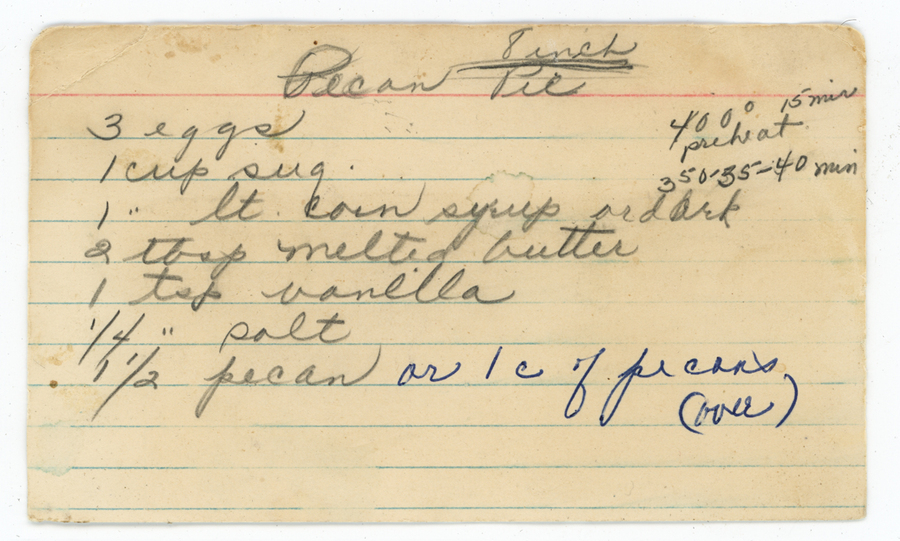 8 inch
Pecan Pie
400° 15 min
preheat
350-35-40 min
3 eggs
1 cup sug.
1 " lt. corn syrup or dark
2 tbsp melted butter
1 tsp vanilla
1/4 " salt
1 1/2 pecan or 1 c of pecans
(over)